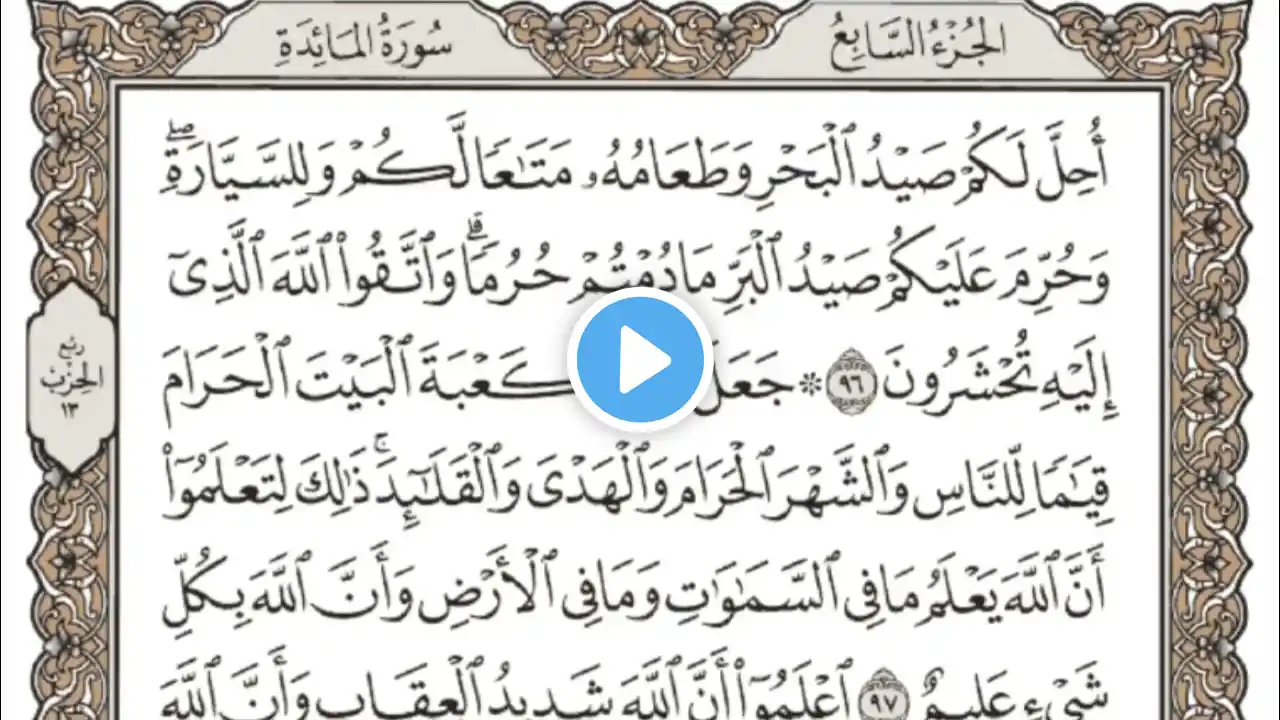 الجُزْءُ السَّابِعُ
سُورَةُ المَائِدَةِ
أُحِلَّ لَكُمْ صَيْدُ ٱلْبَحْرِ وَطَعَامُهُۥ مَتَـٰعًا لَّكُمْ وَلِلسَّيَّارَةِۖ
وَحُرِّمَ عَلَيْكُمْ صَيْدُ ٱلْبَرِّ مَا دُمْتُمْ حُرُمًاۗ وَٱتَّقُوا۟ ٱللَّهَ ٱلَّذِىٓ
إِلَيْهِ تُحْشَرُونَ ٩٦ ۞ جَعَلَ كَعْبَةَ ٱلْبَيْتَ ٱلْحَرَامَ
قِيَـٰمًا لِّلنَّاسِ وَٱلشَّهْرَ ٱلْحَرَامَ وَٱلْهَدْىَ وَٱلْقَلَـٰٓئِدَۚ ذَٰلِكَ لِتَعْلَمُوٓا۟
أَنَّ ٱللَّهَ يَعْلَمُ مَا فِى ٱلسَّمَـٰوَٰتِ وَمَا فِى ٱلْأَرْضِ وَأَنَّ ٱللَّهَ بِكُلِّ
شَىْءٍ عَلِيمٌ ٩٧ ٱعْلَمُوٓا۟ أَنَّ ٱللَّهَ شَدِيدُ ٱلْعِقَابِ وَأَنَّ ٱللَّهَ
رُبْع
الحِزْب
١٣